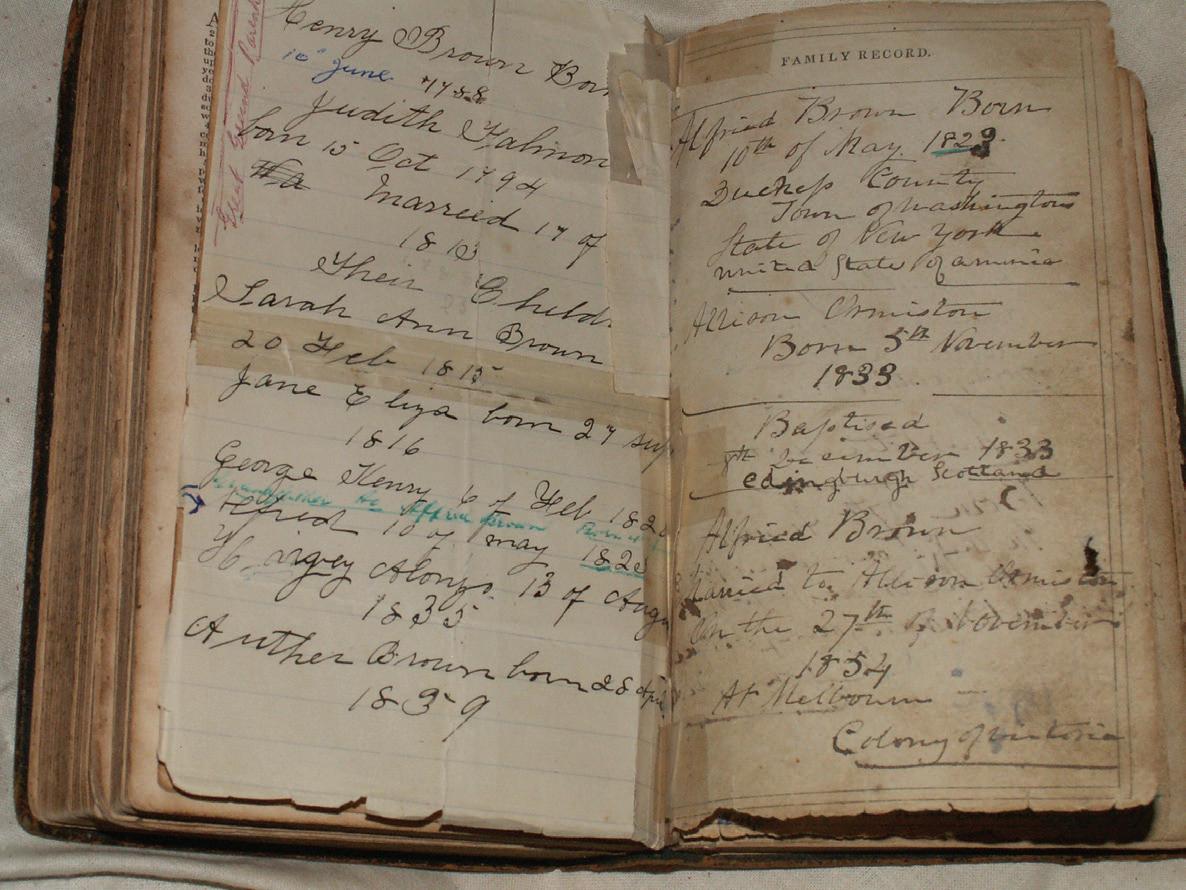 Great Grand Parents
Henry Brown Born
10 June 1788
Judith
born 15 Oct 1794
Married 17 of
1813
Their Child
Sarah Ann Brown
20 Feb 1815
Jane Eliza born 27 sep
1816
George Henry 6 of Feb 182
Alfred Brown
Alfred 10 of may 182
Alonzo 13 of Augu
1835
Auther Brown born 28 Apri
1839
FAMILY RECORD.
Alfried Brown Born
10th of May 1829
Duchess County
Town of Washington
State of New York
united State of america
Allison Ormiston
Born 5th November
1833
Baptised
th December 1833
edingburgh Scotland
Alfried Brown
Married to Allison Ormiston
on the 27th of November
1854
At Melbourn
Colony of victoria